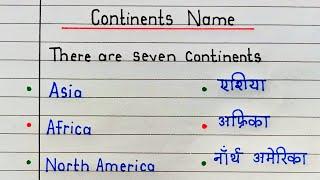 Continents Name
There are seven Continents
• Asia • एशिया
• Africa • अफ्रिका
• North America • नॉर्थ अमेरिका